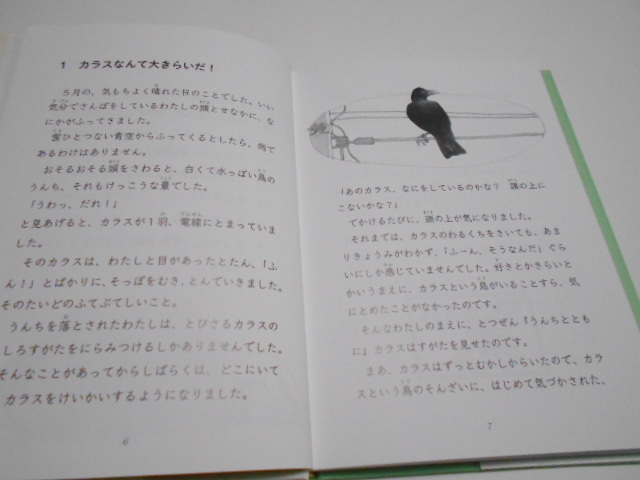 1 カラスなんて大きらいだ！
5月の、気もちよく晴れた日のことでした。いい
気分でさんぽをしているわたしの頭とせなかに、な
にかがふってきました。
雲ひとつない青空からふってくるとしたら、雨で
あるわけはありません。
おそるおそる頭をさわると、白くて水っぽい鳥の
うんち、それもけっこうな量でした。
「うわっ、だれ！」
と見あげると、カラスが1羽、電線にとまっていま
した。
そのカラスは、わたしと目があったとたん、「ふ
ん！」とばかりに、そっぽをむき、とんでいきました。
そのたいどのふてぶてしいこと。
うんちを落とされたわたしは、とびさるカラスの
うしろすがたをにらみつけるしかありませんでした。
そんなことがあってからしばらくは、どこにいて
もカラスをけいかいするようになりました。
6
「あのカラス、なにをしているのかな？ 頭の上に
こないかな？」
でかけるたびに、頭の上が気になりました。
それまでは、カラスのわるくちをきいても、あま
りきょうみがわかず、「ふーん、そうなんだ」ぐら
いにしか感じていませんでした。好きとかきらいと
かいうまえに、カラスという鳥がいることすら、気
にとめたことがなかったのです。
そんなわたしのまえに、とつぜん『うんちととも
に』カラスはすがたを見せたのです。
まあ、カラスはずっとむかしからいたので、カラ
スという鳥のそんざいに、はじめて気づかされた、
7